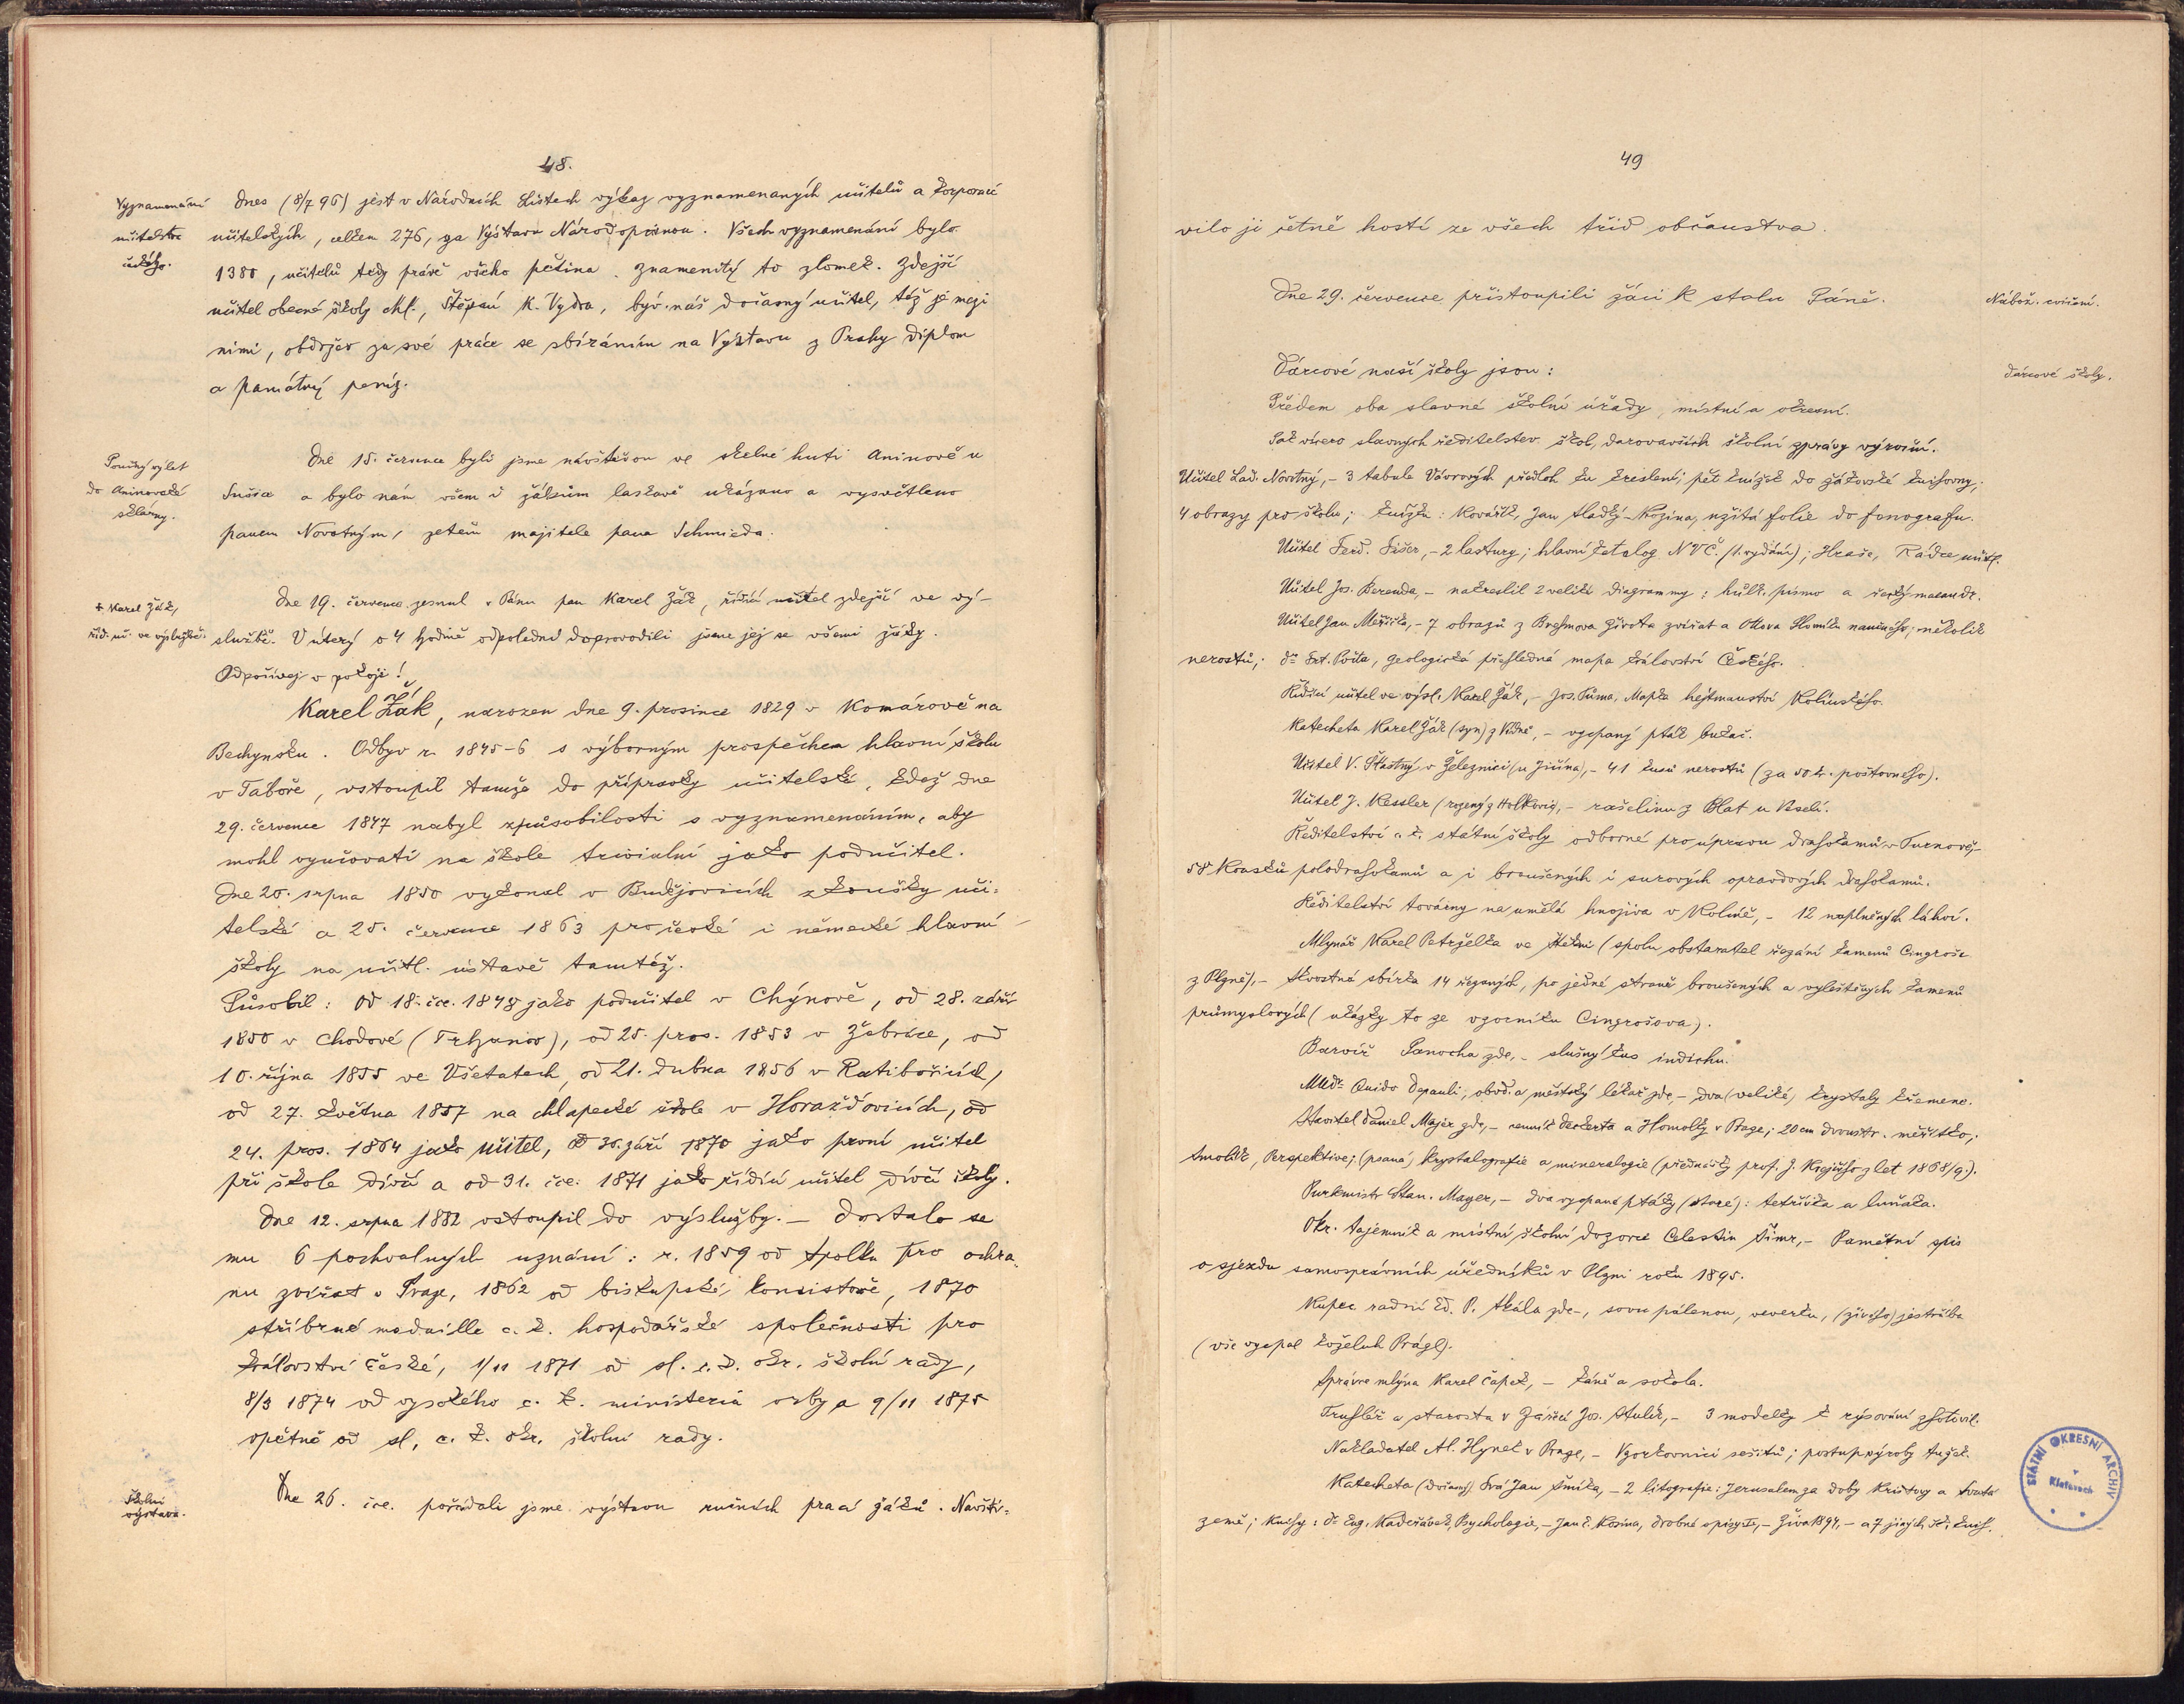 48.
Vyznamenání
učitelstva
českého.
Dnes (8/7 96) jest v Národních Listech výkaz vyznamenaných učitelů a korporací
učitelských, celkem 276, za Výstavu Národopisnou. Všech vyznamenání bylo
1380, učitelů tedy právě všeho pětina. Znamenitý to zlomek. Zdejší
učitel obecné školy chl., Štěpán K. Vydra, býv. náš dočasný učitel, též je mezi
nimi, obdržev za své práce se sbíráním na Výstavu z Prahy diplom
a památný peníz.
Poučný výlet
do Aninovské
sklárny.
Dne 15. července byli jsme návštěvou ve skelné huti Aninově u
Sušice a bylo nám všem i žákům laskavě ukázáno a vysvětleno
panem Novotným, zetěm majitele pana Schmieda.
† Karel Žák,
říd. uč. ve výslužbě.
Dne 19. července zesnul v Pánu pan Karel Žák, řídící učitel zdejší ve vý-
službě. V úterý o 4 hodině odpoledne doprovodili jsme jej se všemi žáky.
Odpočívej v pokoji!
Karel Žák, narozen dne 9. prosince 1829 v Komárově na
Bechynsku. Odbyv r. 1845-6 s výborným prospěchem hlavní školu
v Táboře, vstoupil tamže do přípravky učitelské, kdež dne
29. července 1847 nabyl způsobilosti s vyznamenáním, aby
mohl vyučovati na škole triviální jako podučitel.
Dne 20. srpna 1850 vykonal v Budějovicích zkoušky uči-
telské a 25. července 1863 pro české i německé hlavní
školy na učitl. ústavě tamtéž.
Působil: Od 18. čce. 1848 jako podučitel v Chýnově, od 28. září
1850 v Chodové (Trhanov), od 25. pros. 1853 v Žebráce, od
10. října 1855 ve Všetatech, od 21. dubna 1856 v Ratibořicích,
od 27. května 1857 na chlapecké škole v Horažďovicích, od
24. pros. 1864 jako učitel, od 30. září 1870 jako první učitel
při škole dívčí a od 31. čce. 1871 jako řídící učitel dívčí školy.
Dne 12. srpna 1882 vstoupil do výslužby. – Dostalo se
mu 6 pochvalných uznání: r. 1859 od Spolku pro ochra-
nu zvířat v Praze, 1862 od biskupské konsistoře, 1870
stříbrné medaille c. k. hospodářské společnosti pro
království české, 1/11 1871 od sl. c. k. okr. školní rady,
8/3 1874 od vysokého c. k. ministeria osvy a 9/11 1875
opětně od sl. c. k. okr. školní rady.
Školní
výstava.
Dne 26. čce. pořádali jsme výstavu ručních prací žáků. Navští-
49
vilo ji četně hostí ze všech tříd občanstva.
Dne 29. července přistoupili žáci k stolu Páně.
Nábož. cvičení.
Dárcové naší školy jsou:
Dárcové školy.
Předem oba slavné školní úřady, místní a okresní.
Pak vícero slavných ředitelstev škol, darovavších školní zprávy výroční.
Učitel Lad. Novotný, – 3 tabule Vávrových předloh ku kreslení; pět knížek do žákovské knihovny;
4 obrazy pro školu; knížku: Kovářík, Jan Sladký-Kozina, užitá folie do fonografu.
Učitel Ferd. Fišer, – 2 lastury; hlavní katalog NVČ. (1. vydání); Hraše, Rádce učitl.
Učitel Jos. Berenda, – nakreslil 2 veliké diagrammy: hůlk. písmo a řecký maeandr.
Učitel Jan Meřička, – 7 obrazů z Brehmova Života zvířat a Ottova Slovníku naučného; několik
nerostů; Dr. Frt. Počta, geologická přehledná mapa království Českého.
Řídící učitel ve výsl. Karel Žák, – Jos. Tůma, Mapka hejtmanství Kolínského.
Katecheta Karel Žák (syn) z Vídně, – vycpaný pták bukač.
Učitel V. Šťastný v Železnici (u Jičína), – 41 kusů nerostů (za 50 k. poštovného).
Učitel J. Kessler (rozený z Holkovic), – rašelinu z Blat u Veselí.
Ředitelství c. k. státní školy odborné pro úpravu drahokamů v Turnově, –
58 kousků polodrahokamů a i broušených i surových opravdových drahokamů.
Ředitelství továrny na umělá hnojiva v Kolíně, – 12 naplněných láhví.
Mlynář Karel Petrželka ve Štěkni (spolu obstaratel řezání kamenů Cingroše
z Plzně), – skvostná sbírka 14 řezaných, po jedné straně broušených a vyleštěných kamenů
průmyslových (ukázky to ze vzorníku Cingrošova).
Barvíř Panocha zde, – slušný kus indichu.
MUdr. Quido Depauli, obvod. a městský lékař zde, – dva (veliké) krystaly křemene.
Stavitel Daniel Majer zde, – cenník Deckerta a Homolky v Praze; 20 cm dvoustr. měřítko;
Smolík, Perspektive; (psaná) Krystalografie a mineralogie (přednášky prof. J. Krejčího z let 1868/9.).
Purkmistr Stan. Mayer, – dva vycpané ptáky (staré): tetřívka a luňáka.
Okr. tajemník a místní školní dozorce Celestin Šimr, – Pamětní spis
o sjezdu samosprávních úředníků v Plzni roku 1895.
Kupec radní Ed. P. Skála zde –, sovu pálenou, veverku, (živého) jestřába
(vše vycpal koželuh Prágl).
Správce mlýna Karel Čapek, – káně a sokola.
Truhlář a starosta v Zářečí Jos. Stulík, – 3 modelky k rýsování zhotovil.
Nakladatel Al. Hynek v Praze, – Vzorkovnici sešitů; postup výroby tužek.
Katecheta (dočasný) Frá Jan Šmíka, – 2 litografie: Jerusalem za doby Kristovy a Svatá
země; Knihy: Dr. Eug. Kadeřávek, Psychologie, – Jan L. Kosina, drobné spisy II., – Živa 1894, – a 7 jiných šk. knih.
STÁTNÍ OKRESNÍ ARCHIV
v
Klatovech